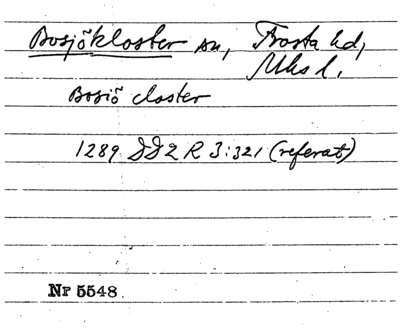 Bosjökloster sn, Frosta hd,
Mhs l.
Bosiö closter
1289 DD2 R 3:321 (referat)
Nr 5548